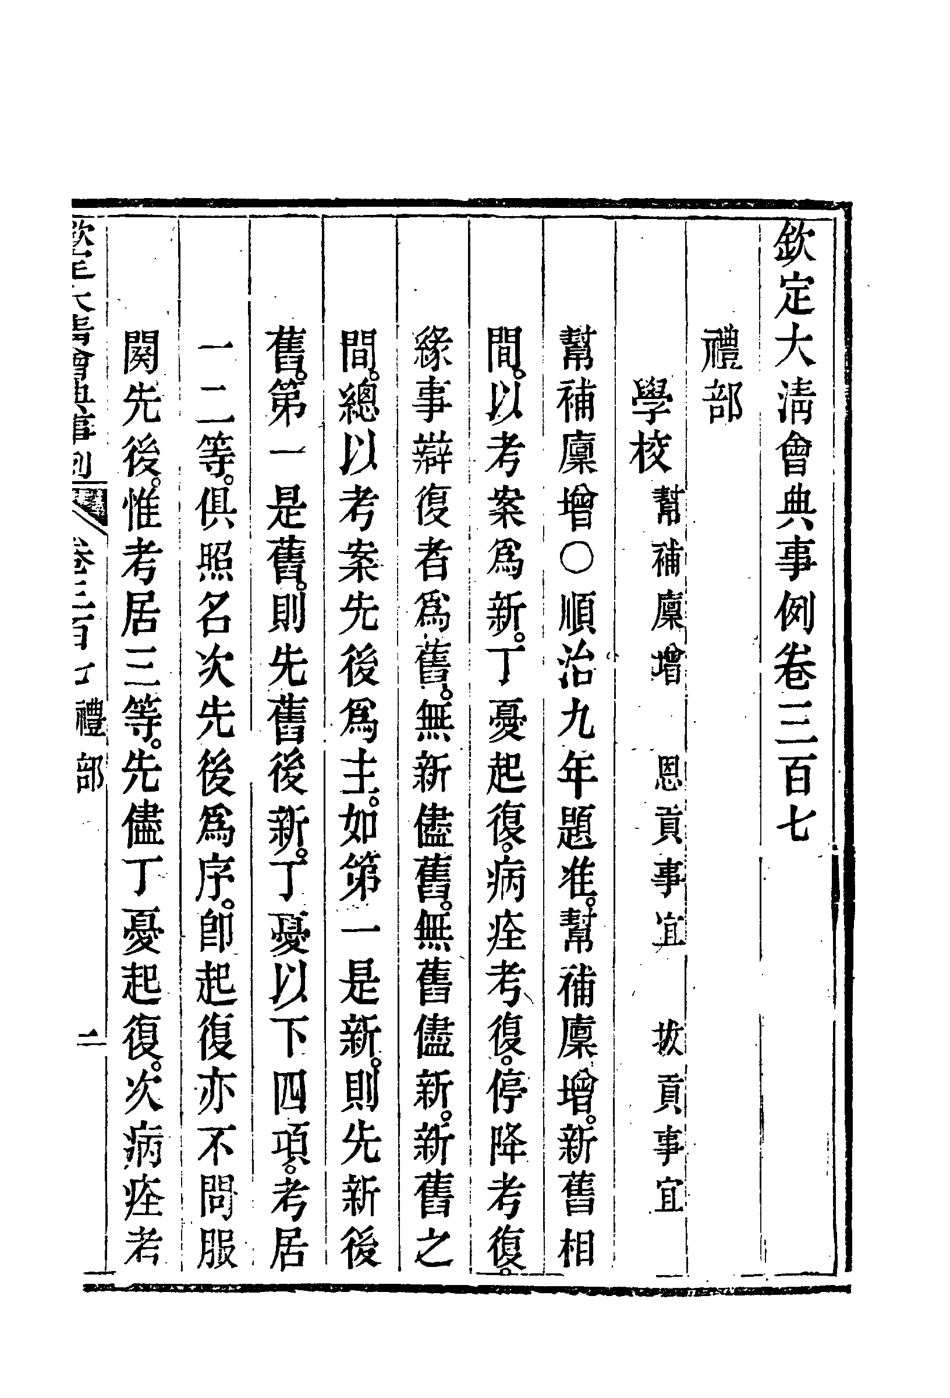 欽定大清會典事例卷三百七
禮部
學校 幫補廩增 恩貢事宜 拔貢事宜
幫補廩增○順治九年題准。幫補廩增。新舊相
間。以考案爲新。丁憂起復。病痊考復。停降考復。
緣事辯復者爲舊。無新儘舊。無舊儘新。新舊之
間。總以考案先後爲主。如第一是新。則先新後
舊。第一是舊。則先舊後新。丁憂以下四項。考居
一二等。俱照名次先後爲序。卽起復亦不問服
闋先後。惟考居三等。先儘丁憂起復。次病痊考
欽定大淸會典事例 卷三百七 禮部 二